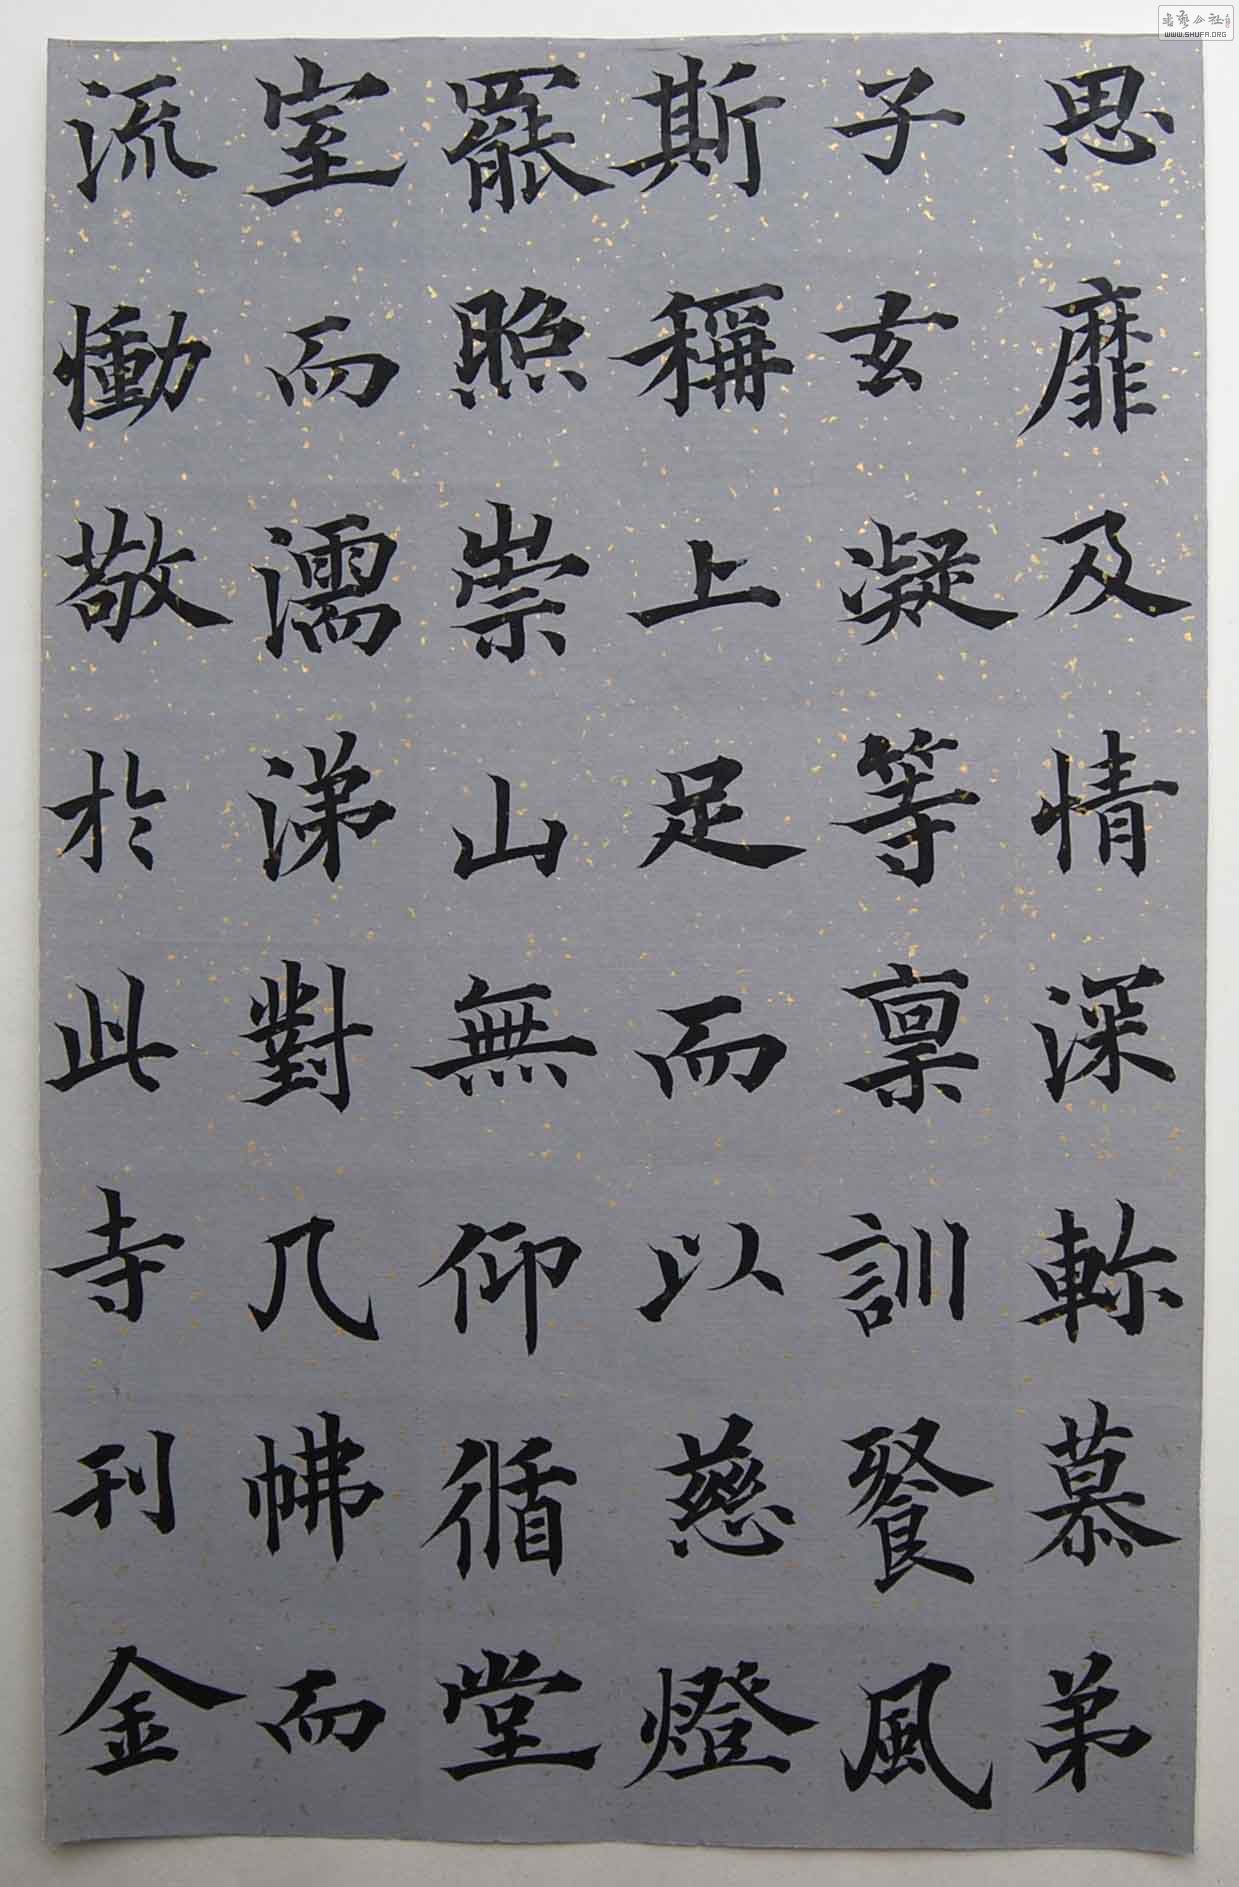 思靡及情深軫慕弟
子玄凝等稟訓餐風
斯稱上足而以慈燈
罷照崇山無仰循堂
室而濡涕對几怫而
流慟敬於此寺刊金
WWW.SHUFA.ORG